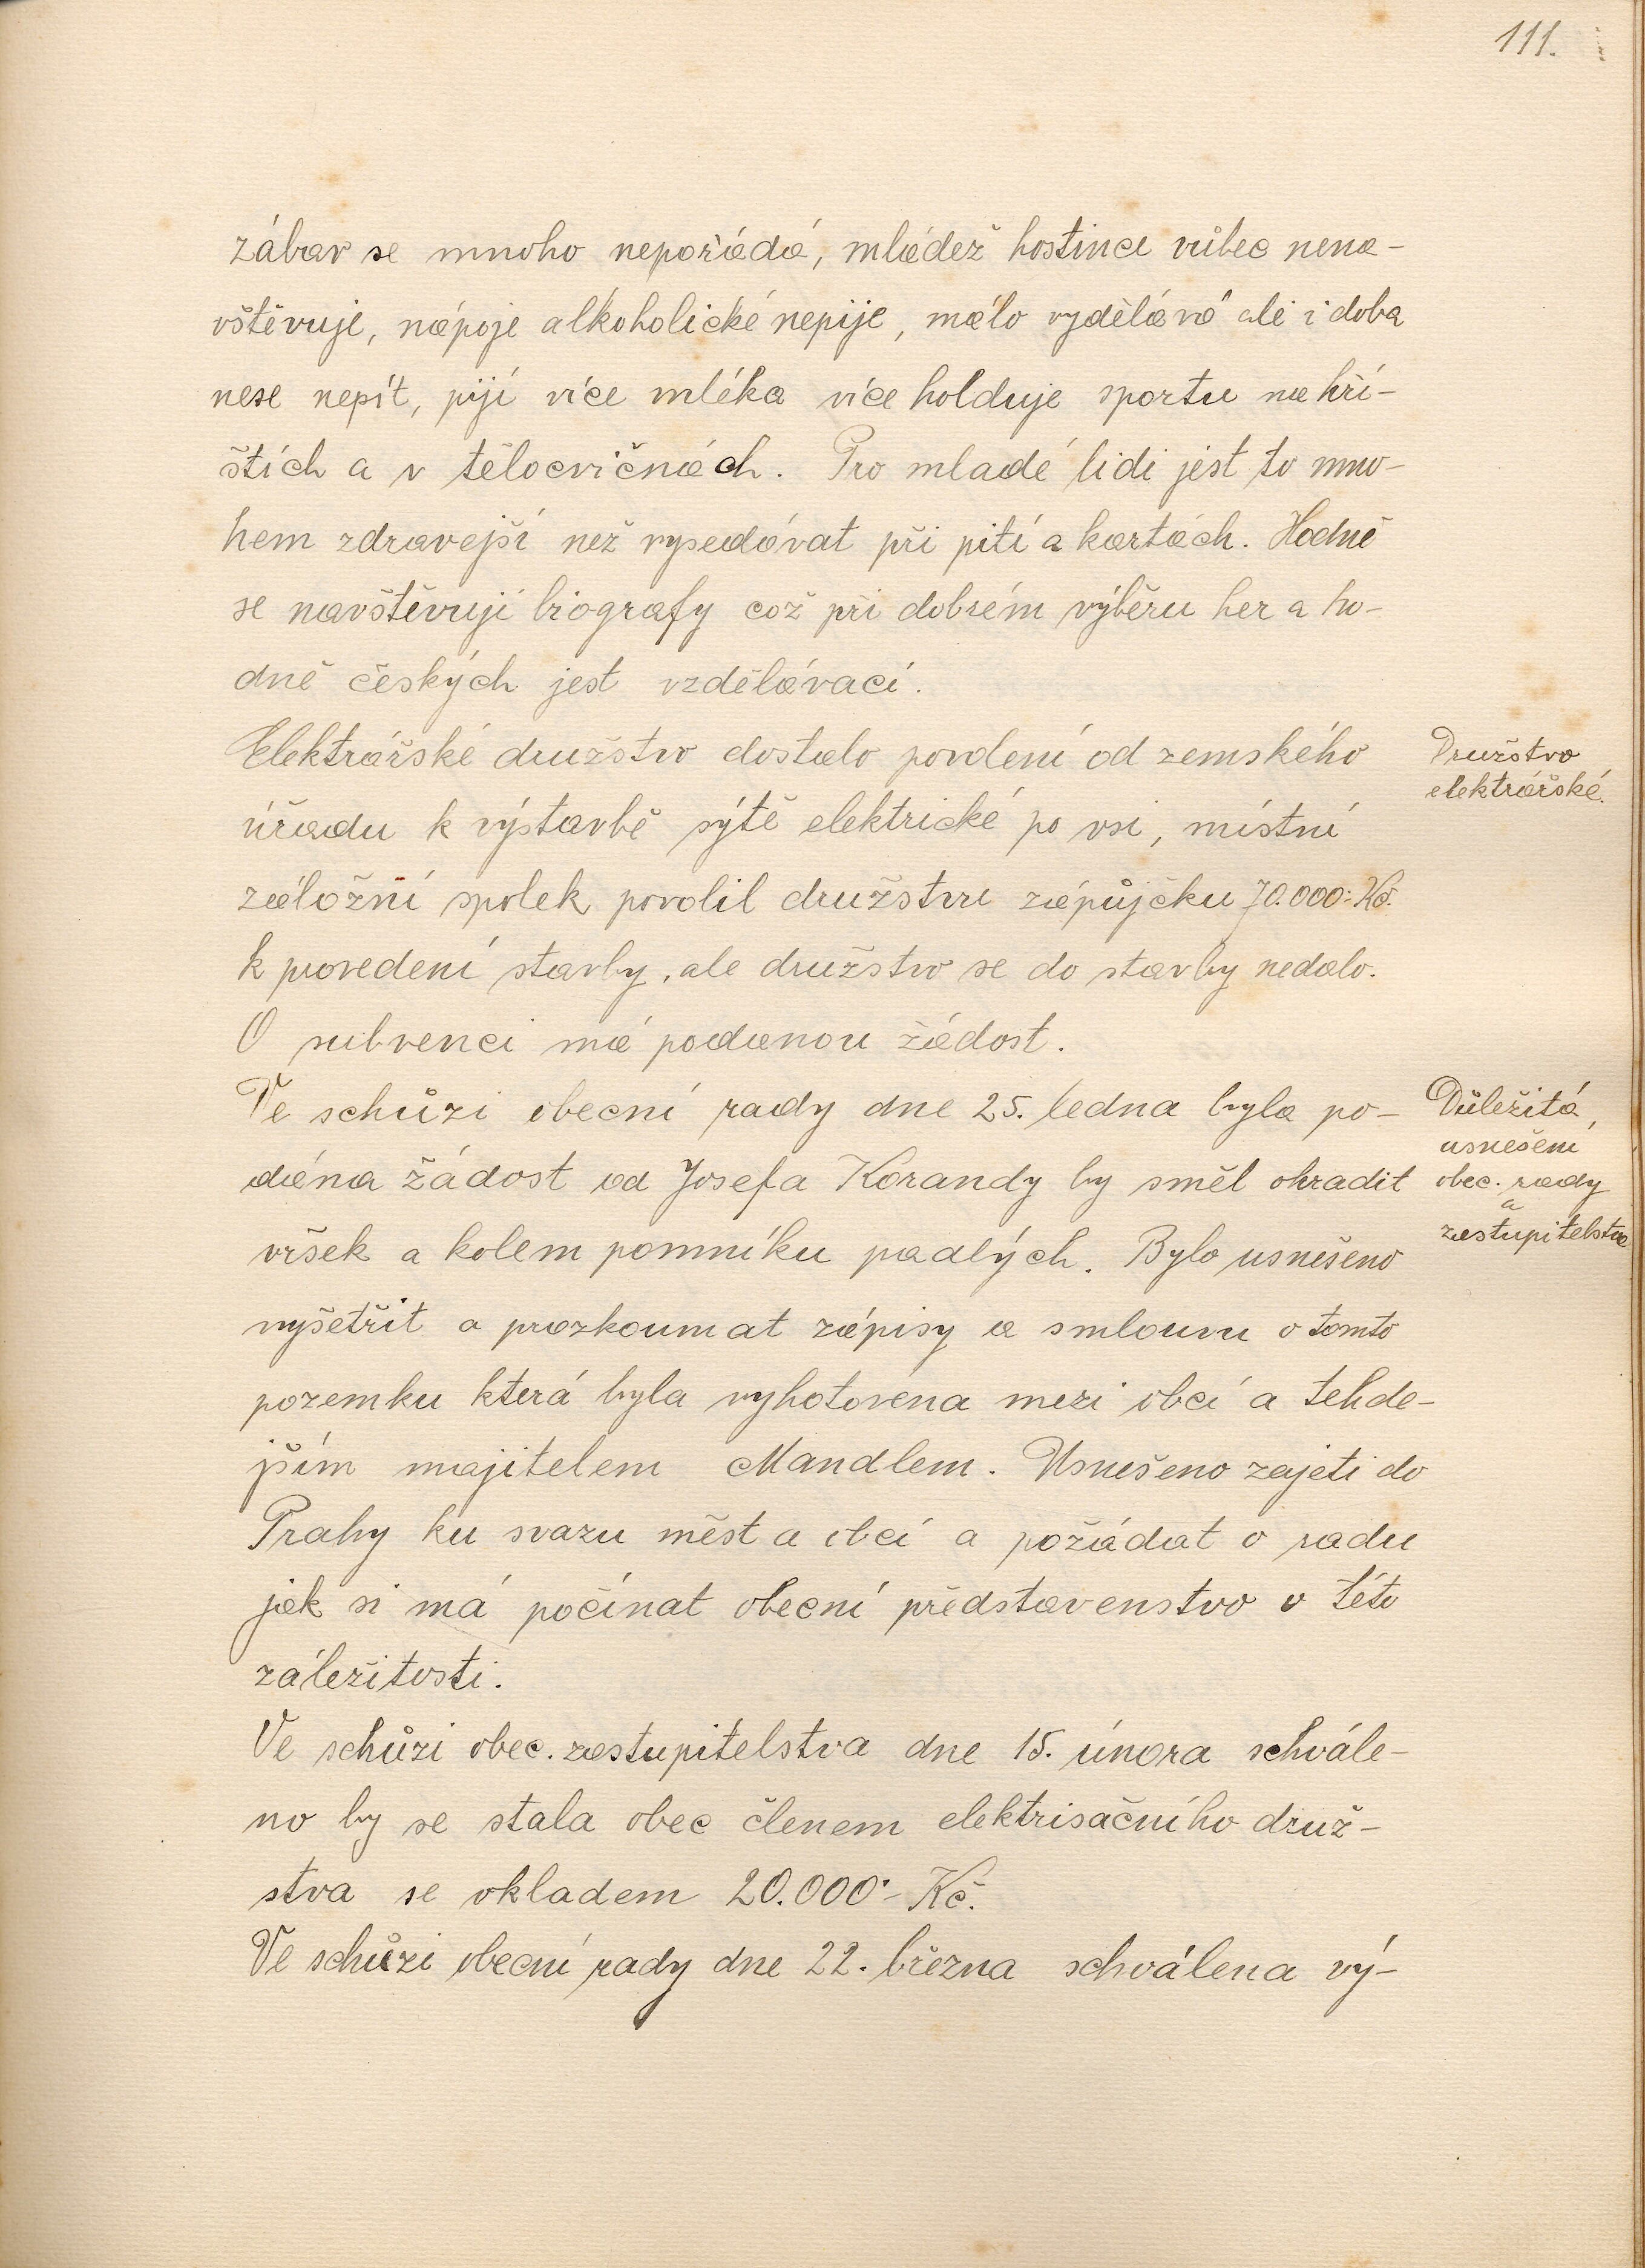 111.
zábav se mnoho nepořádá, mládež hostince vůbec nena-
vštěvuje, nápoje alkoholické nepije, málo vydělává ale i doba
nese nepít, pijí více mléka více holduje sportu na hři-
štích a v tělocvičnách. Pro mladé lidi jest to mno-
hem zdravejší než vysedávat při pití a kartách. Hodně
se navštěvují biografy což při dobrém výběru her a ho-
dně českých jest vzdělávací.
Elektrářské družstvo dostalo povolení od zemského
úřadu k výstavbě sýtě elektrické po vsi, místní
záložní spolek povolil družstvu zápůjčku 70.000·- Kč.
k provedení stavby, ale družstvo se do stavby nedalo.
O subvenci má podanou žádost.
Družstvo
elektrářské.
Ve schůzi obecní rady dne 25. ledna byla po-
dána žádost od Josefa Korandy by směl ohradit
vršek a kolem pomníku padlých. Bylo usnešeno
vyšetřit a prozkoumat zápisy a smlouvu o tomto
pozemku která byla vyhotovena mezi obcí a tehde-
jším majitelem Mandlem. Usnešeno zajeti do
Prahy ku svazu měst a obcí a požádat o radu
jak si má počínat obecní představenstvo v této
záležitosti.
Důležitá
usnešení
obec. rady
a
zastupitelstva
Ve schůzi obec. zastupitelstva dne 15. února schvále-
no by se stala obec členem elektrisačního druž-
stva se vkladem 20.000·- Kč.
Ve schůzi obecní rady dne 22. března schválena vý-